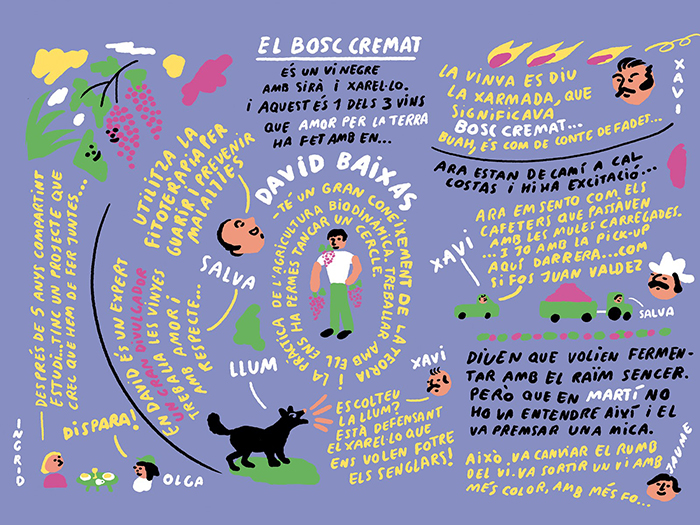 EL BOSC CREMAT
ÉS UN VI NEGRE
AMB SIRÀ I XAREL·LO.
I AQUEST ÉS 1 DELS 3 VINS
QUE AMOR PER LA TERRA
HA FET AMB EN...
DAVID BAIXAS
-TÉ UN GRAN CONEIXEMENT DE LA TEORIA I LA PRÀCTICA DE L'AGRICULTURA BIODINÀMICA. TREBALLAR AMB ELL ENS HA PERMÈS TANCAR UN CERCLE.
UTILITZA LA
FITOTERÀPIA PER
GUARIR I PREVENIR
MALALTIES
SALVA
EN DAVID ÉS UN EXPERT
UN GRAN DIVULGADOR
TREBALLA LES VINYES
AMB AMOR I
RESPECTE...
DESPRÉS DE 5 ANYS COMPARTINT
ESTUDI... TINC UN PROJECTE QUE
CREC QUE HEM DE FER JUNTES...
INGRID
DISPARA!
OLGA
LLUM
XAVI
ESCOLTEU
LA LLUM?
ESTÀ DEFENSANT
EL XAREL·LO QUE
ENS VOLEN FOTRE
ELS SENGLARS!
LA VINYA ES DIU
LA XARMADA, QUE
SIGNIFICAVA
BOSC CREMAT...
BUAH, ÉS COM DE CONTE DE FADES...
XAVI
ARA ESTAN DE CAMÍ A CAL
COSTAS I HI HA EXCITACIÓ...
XAVI
ARA EM SENTO COM ELS
CAFETERS QUE PASSAVEN
AMB LES MULES CARREGADES.
... I JO AMB LA PICK-UP
AQUÍ DARRERA... COM
SI FOS JUAN VALDEZ
SALVA
DIUEN QUE VOLIEN FERMEN-
TAR AMB EL RAÏM SENCER.
PERÒ QUE EN MARTÍ NO
HO VA ENTENDRE AIXÍ I EL
VA PREMSAR UNA MICA.
AIXÒ VA CANVIAR EL RUMB
DEL VI. VA SORTIR UN VI AMB
MÉS COLOR, AMB MÉS FO...
JAUME